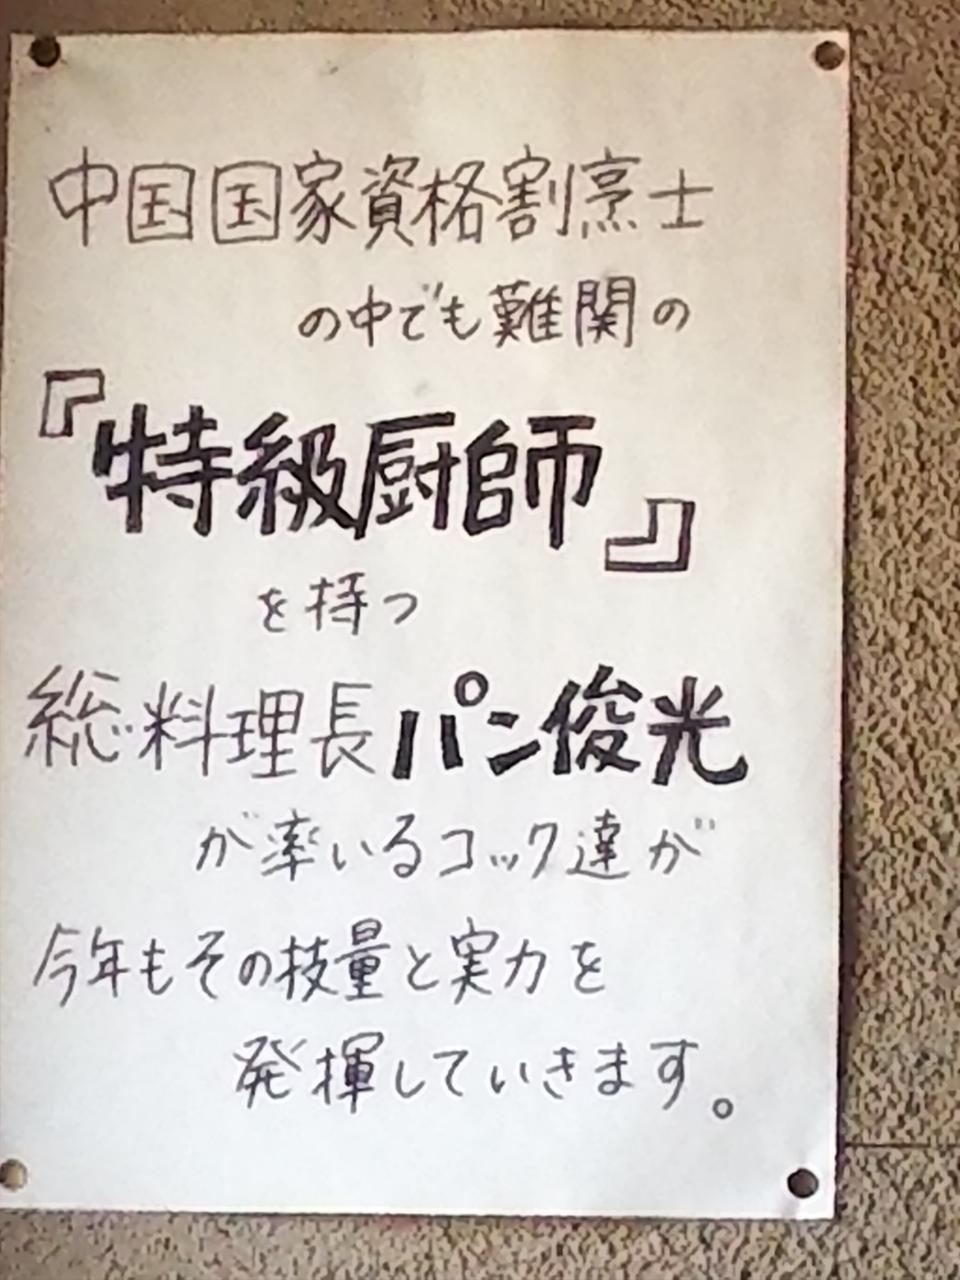 中国国家資格割烹士
の中でも難関の
『特級厨師』
を持つ
総料理長パン俊光
が率いるコック達が
今年もその技量と実力を
発揮していきます。